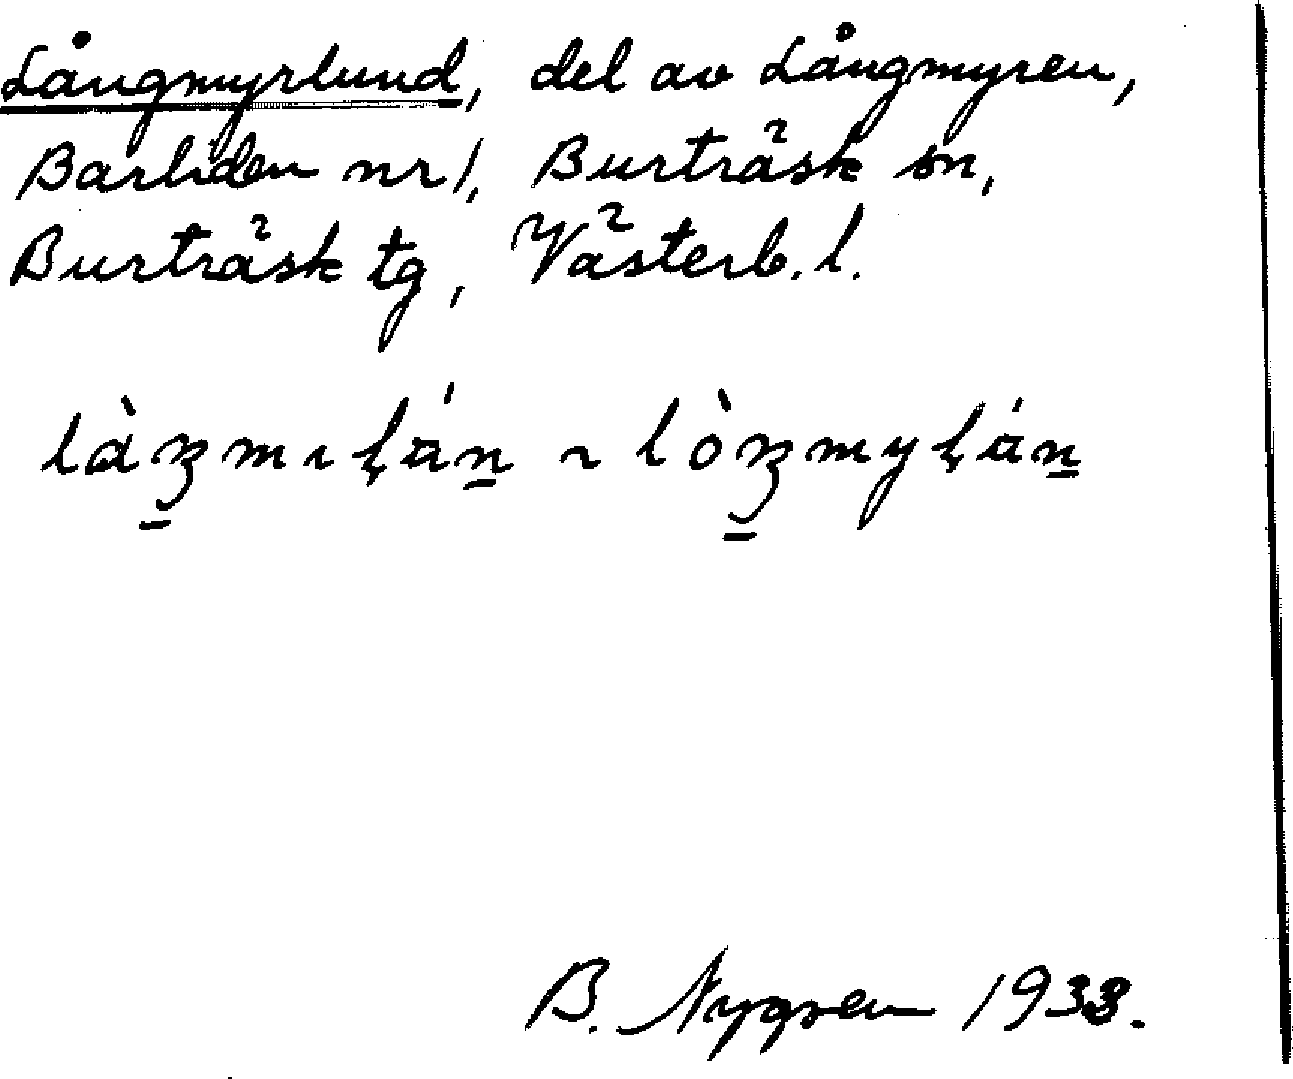 Långmyrlund, del av Långmyren,
Barliden nr 1, Burträsk sn,
Burträsk tg, Västerb. l.
B. Nygren 1933.